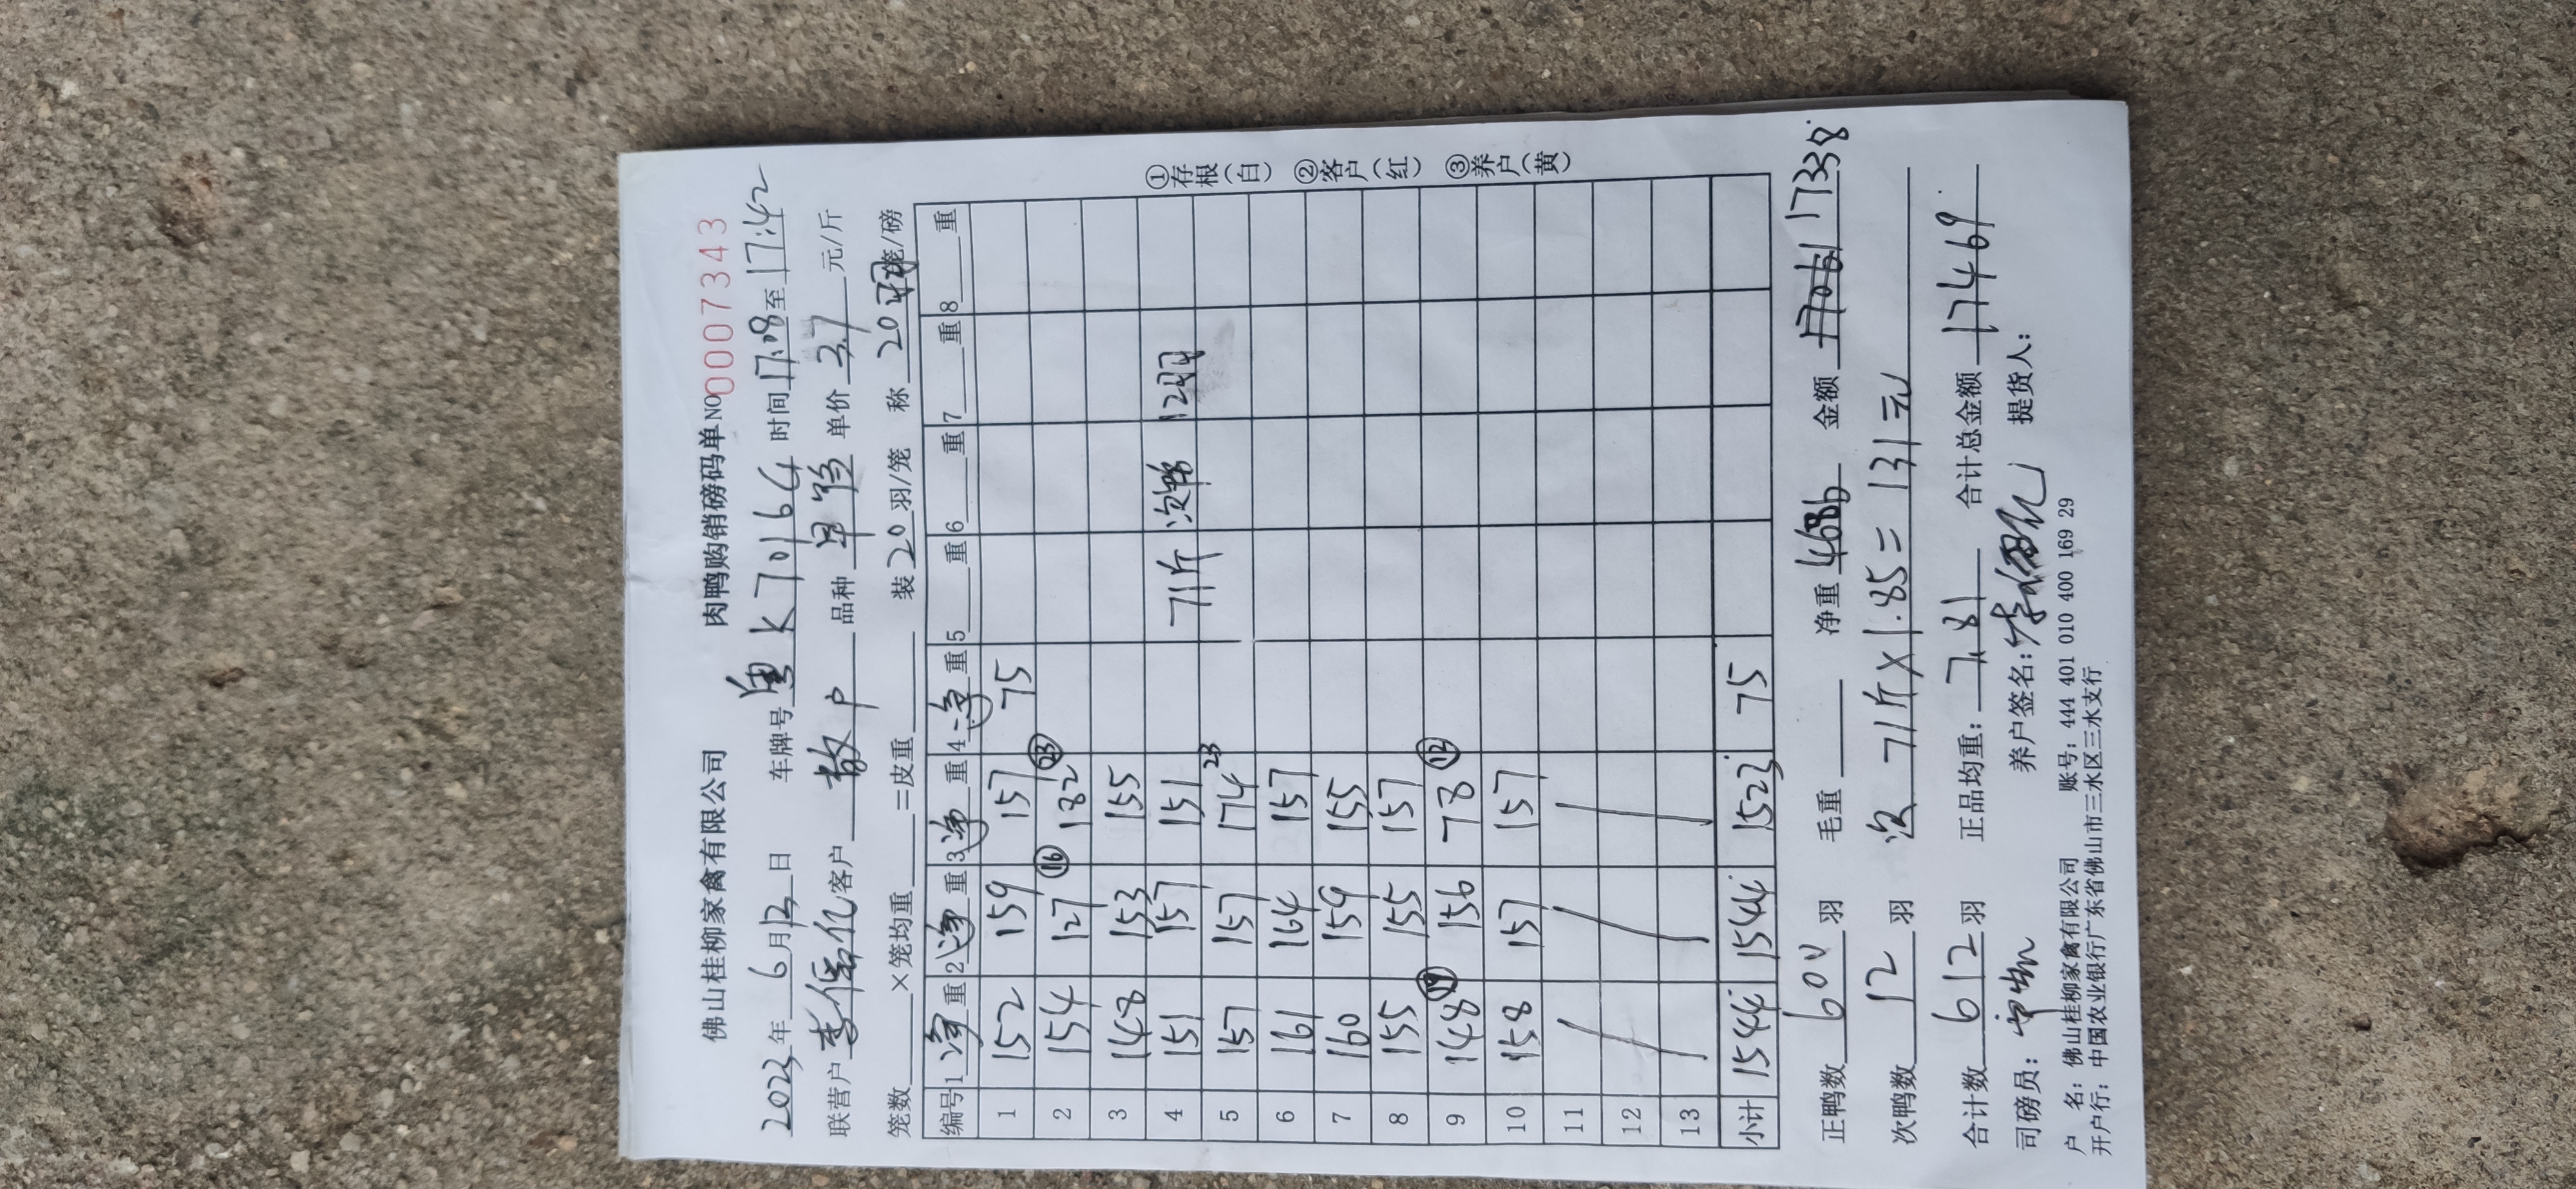 佛山桂柳家禽有限公司 肉鸭购销磅码单 NO 0007343
2023年6月12日 车牌号 K7016G 时间17:08至17:42
联营户 李保亿 客户 散户 品种 单价3.7元/斤
笼数 ×笼均重 =皮重 装20羽/笼 称20羽笼/磅
编号 1净重 2净重 3净重 4净重 5 重 6 重 7 重 8 重
1 152 159 157 75
2 154 127 ⑯ 182 ㉓
3 148 153 155
4 151 157 151 71斤 次鸭 12羽
5 157 157 174 23
6 161 164 157
7 160 159 155
8 155 155 157
9 148 ⑲ 156 78 ⑫
10 158 157 157
11 / / /
12
13
小计 1544 1544 1523 75
正鸭数 600 羽 毛重 净重 4686 金额 17061 17338
次鸭数 12 羽 次 71斤×1.85=131元
合计数 612 羽 正品均重:7.81 合计总金额 17469
司磅员: 养户签名: 提货人:
户 名:佛山桂柳家禽有限公司 账号:444 401 010 400 169 29
开户行:中国农业银行广东省佛山市三水区三水支行
①存根(白) ②客户(红) ③养户(黄)